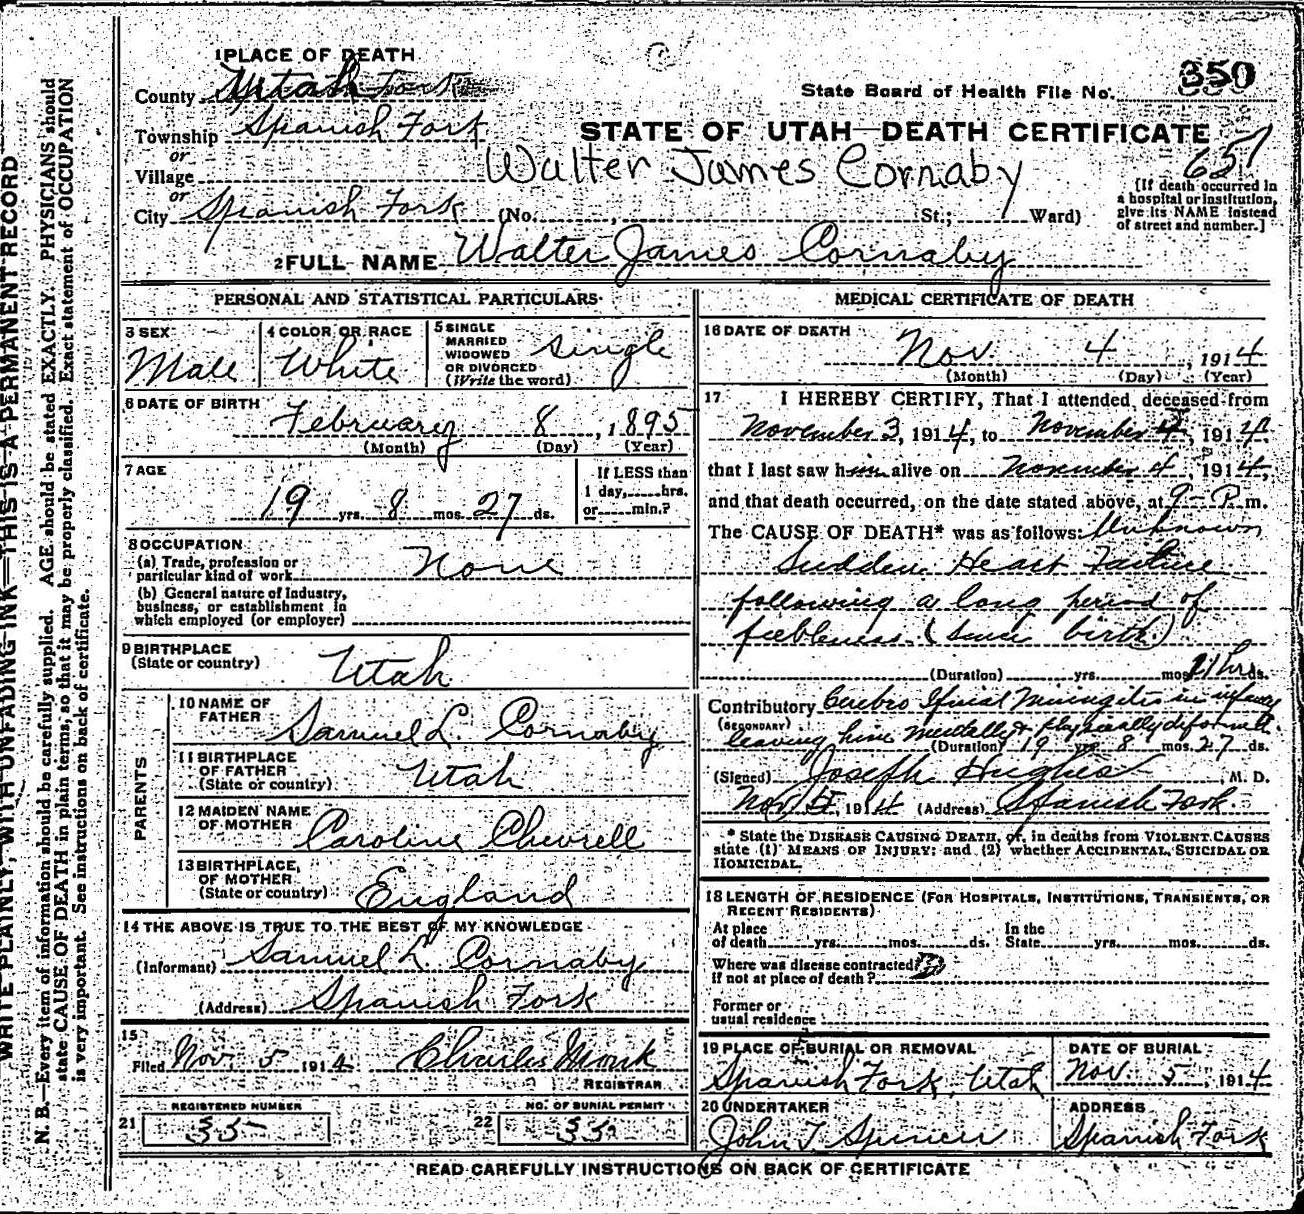 WRITE PLAINLY, WITH UNFADING INK—THIS IS A PERMANENT RECORD
N. B.—Every item of information should be carefully supplied. AGE should be stated EXACTLY. PHYSICIANS should
state CAUSE OF DEATH in plain terms, so that it may be properly classified. Exact statement of OCCUPATION
is very important. See instructions on back of certificate.
1 PLACE OF DEATH
County Utah
State Board of Health File No. 350
Township Spanish Fork
STATE OF UTAH—DEATH CERTIFICATE
or
651
Village
Walter James Cornaby
or
City Spanish Fork (No. , St.; Ward)
[If death occurred in
a hospital or institution,
give its NAME instead
of street and number.]
2 FULL NAME Walter James Cornaby
PERSONAL AND STATISTICAL PARTICULARS
3 SEX
Male
4 COLOR OR RACE
White
5 SINGLE
MARRIED
WIDOWED
OR DIVORCED
(Write the word)
single
6 DATE OF BIRTH
February 8, 1895
(Month) (Day) (Year)
7 AGE
19 yrs. 8 mos. 27 ds.
If LESS than
1 day, hrs.
or min.?
8 OCCUPATION
(a) Trade, profession or
particular kind of work None
(b) General nature of Industry,
business, or establishment in
which employed (or employer)
9 BIRTHPLACE
(State or country) Utah
PARENTS
10 NAME OF
FATHER Samuel L. Cornaby
11 BIRTHPLACE
OF FATHER
(State or country) Utah
12 MAIDEN NAME
OF MOTHER Caroline Cheverell
13 BIRTHPLACE,
OF MOTHER
(State or country) England
14 THE ABOVE IS TRUE TO THE BEST OF MY KNOWLEDGE
(Informant) Samuel L. Cornaby
(Address) Spanish Fork
15
Filed Nov. 5 1914 Charles Monk
REGISTRAR
21 REGISTERED NUMBER
35
22 NO. OF BURIAL PERMIT
35
MEDICAL CERTIFICATE OF DEATH
16 DATE OF DEATH
Nov. 4, 1914
(Month) (Day) (Year)
17 I HEREBY CERTIFY, That I attended deceased from
November 3, 1914, to November 4, 1914,
that I last saw him alive on November 4, 1914,
and that death occurred, on the date stated above, at 9- P.m.
The CAUSE OF DEATH* was as follows: Unknown
Sudden Heart Failure
following a long period of
feebleness (since birth)
(Duration) yrs. mos. 21 hrs ds.
Contributory Cerebro Spinal Miningites in infancy
(SECONDARY) leaving him mentally & physically deformed.
(Duration) 19 yrs. 8 mos. 27 ds.
(Signed) Joseph Hughes, M. D.
Nov. 5, 1914 (Address) Spanish Fork.
* State the DISEASE CAUSING DEATH, or, in deaths from VIOLENT CAUSES
state (1) MEANS OF INJURY; and (2) whether ACCIDENTAL, SUICIDAL OR
HOMICIDAL.
18 LENGTH OF RESIDENCE (FOR HOSPITALS, INSTITUTIONS, TRANSIENTS, OR
RECENT RESIDENTS)
At place
of death yrs. mos. ds.
In the
State yrs. mos. ds.
Where was disease contracted
if not at place of death?
Former or
usual residence
19 PLACE OF BURIAL OR REMOVAL
Spanish Fork, Utah
DATE OF BURIAL
Nov. 5, 1914
20 UNDERTAKER
John T. Spencer
ADDRESS
Spanish Fork
READ CAREFULLY INSTRUCTIONS ON BACK OF CERTIFICATE